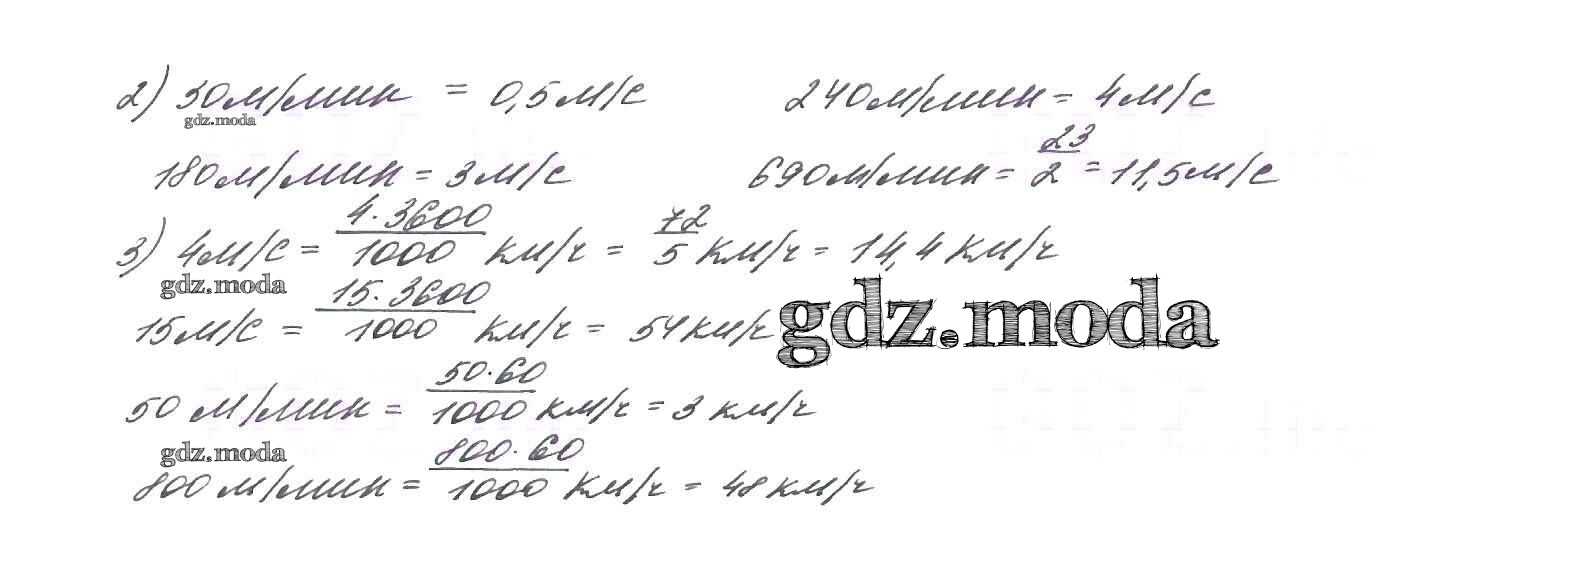 2) 30 м/мин = 0,5 м/с 240 м/мин = 4 м/с
gdz.moda
180 м/мин = 3 м/с 690 м/мин = 23/2 = 11,5 м/с
3) 4 м/с = 4·3600/1000 км/ч = 72/5 км/ч = 14,4 км/ч
gdz.moda
15 м/с = 15·3600/1000 км/ч = 54 км/ч
gdz.moda
50 м/мин = 50·60/1000 км/ч = 3 км/ч
gdz.moda
800 м/мин = 800·60/1000 км/ч = 48 км/ч